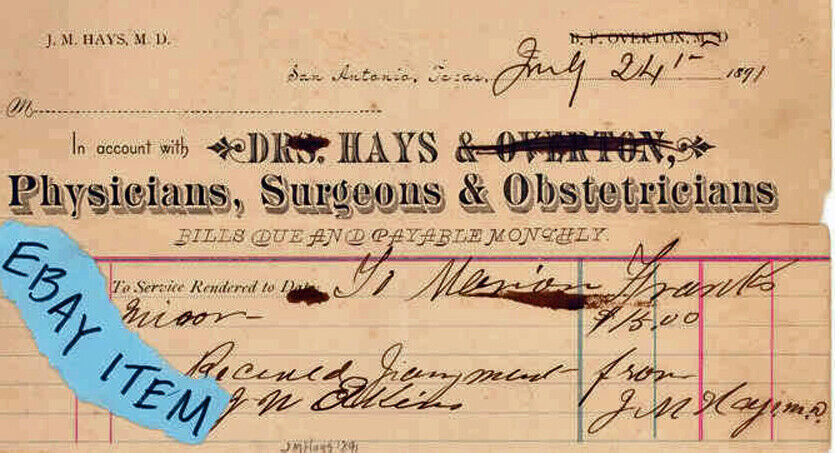 J. M. HAYS, M. D.
B. F. OVERTON, M. D
San Antonio, Texas, July 24th 1891
M
In account with DRS. HAYS & OVERTON,
Physicians, Surgeons & Obstetricians
BILLS DUE AND PAYABLE MONTHLY.
To Service Rendered to Date To Marion Franks
minor $15.00
Received payment from
J W Elkins J. M Hays M.D.
EBAY ITEM
J M Hays 1891